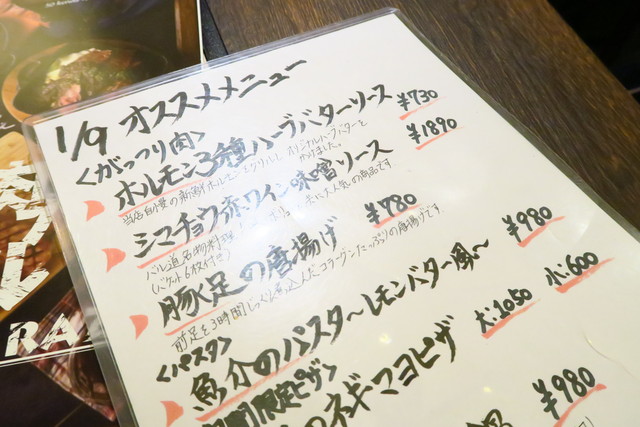 1/9 オススメメニュー
<がっつり肉>
ホルモン3種ハーブバターソース ¥730
当店自慢の新鮮ホルモンをグリルし、オリジナルハーブバターと
シマチョウ赤ワイン味噌ソース ¥1890
バル道名物料理
(バゲット6枚付き)
豚足の唐揚げ ¥780
前足を3時間じっくり煮込んだコラーゲンたっぷりの唐揚げです
<パスタ>
魚介のパスタ〜レモンバター風〜 ¥980
期間限定ピザ>
ネギマヨピザ 大:1050 小:600
¥980
RA